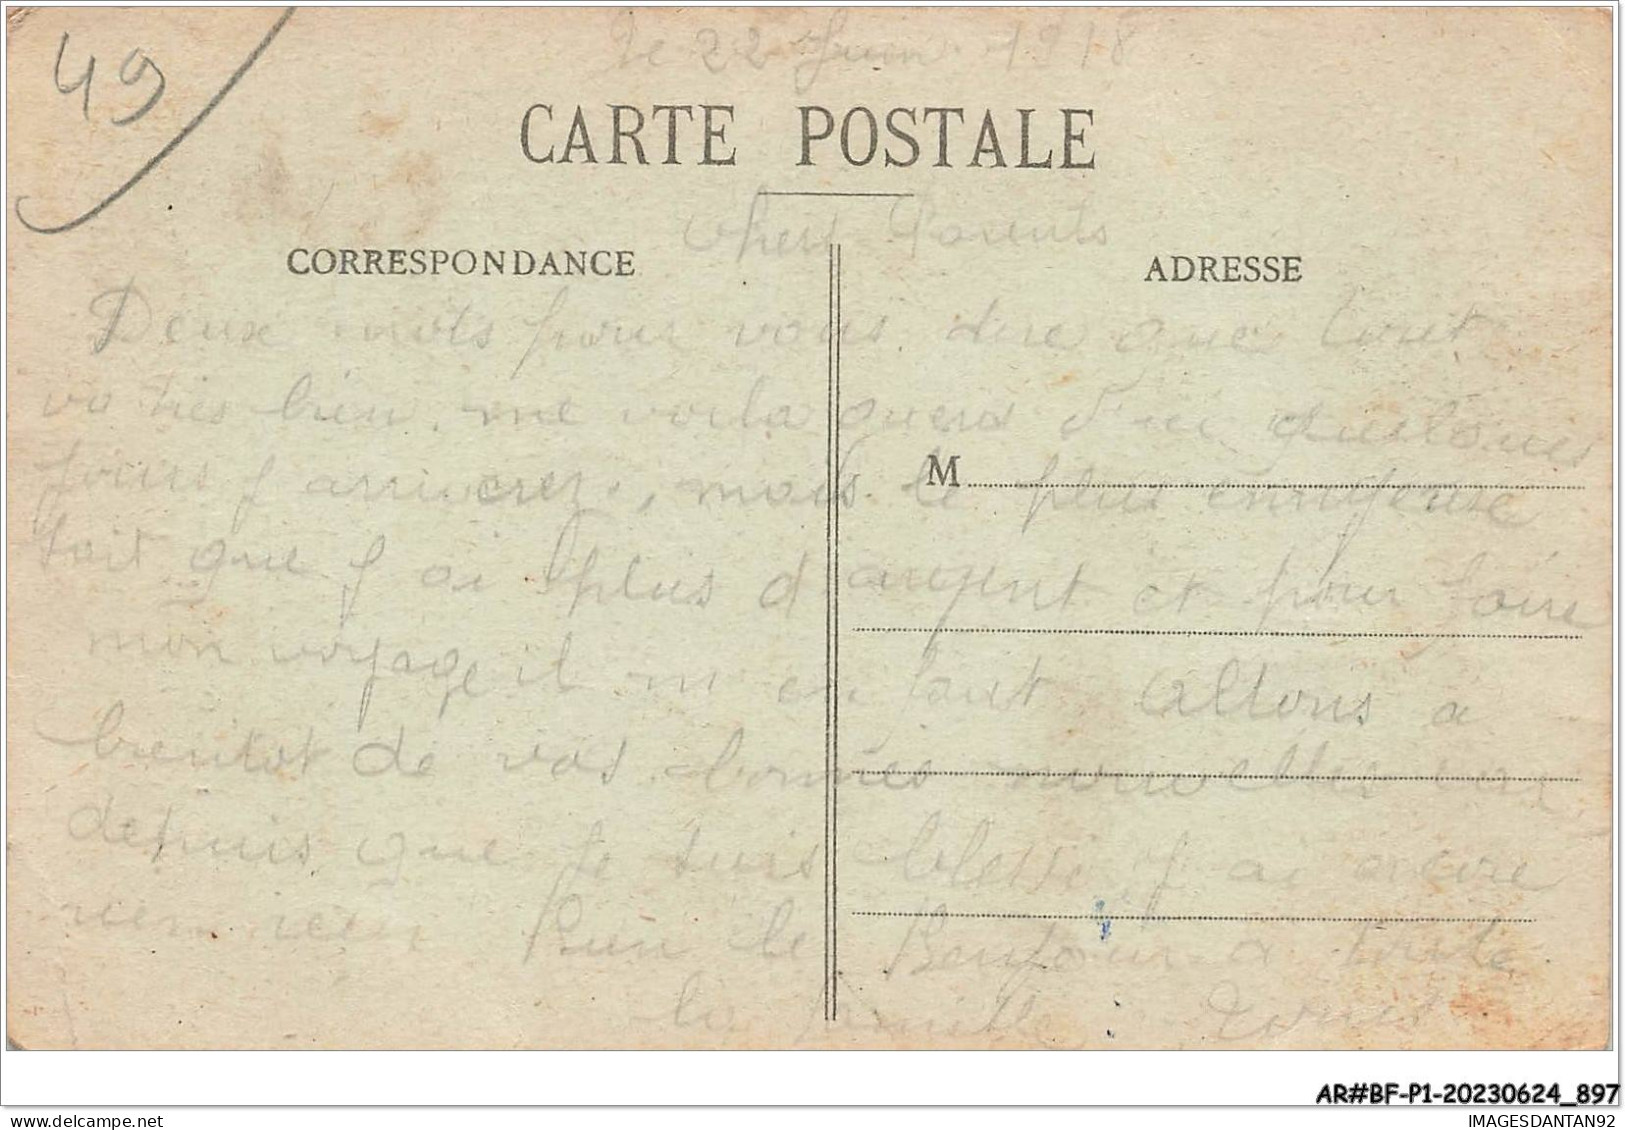 49
le 22 Juin 1918
CARTE POSTALE
Chers Parents
CORRESPONDANCE
ADRESSE
Deux mots pour vous dire que tout
va tres bien me voila gueri d'ici quelques
M
jours j arriverez, mais le plus ennuyeuse
sait que j ai plus d argent et pour faire
mon voyage il m en faut Allons a
bientot de vos bonnes nouvelles car
depuis que je suis blesse j ai encore
rien Bien le Bonjour a toute
la famille
AR#BF-P1-20230624_897
IMAGESDANTAN92